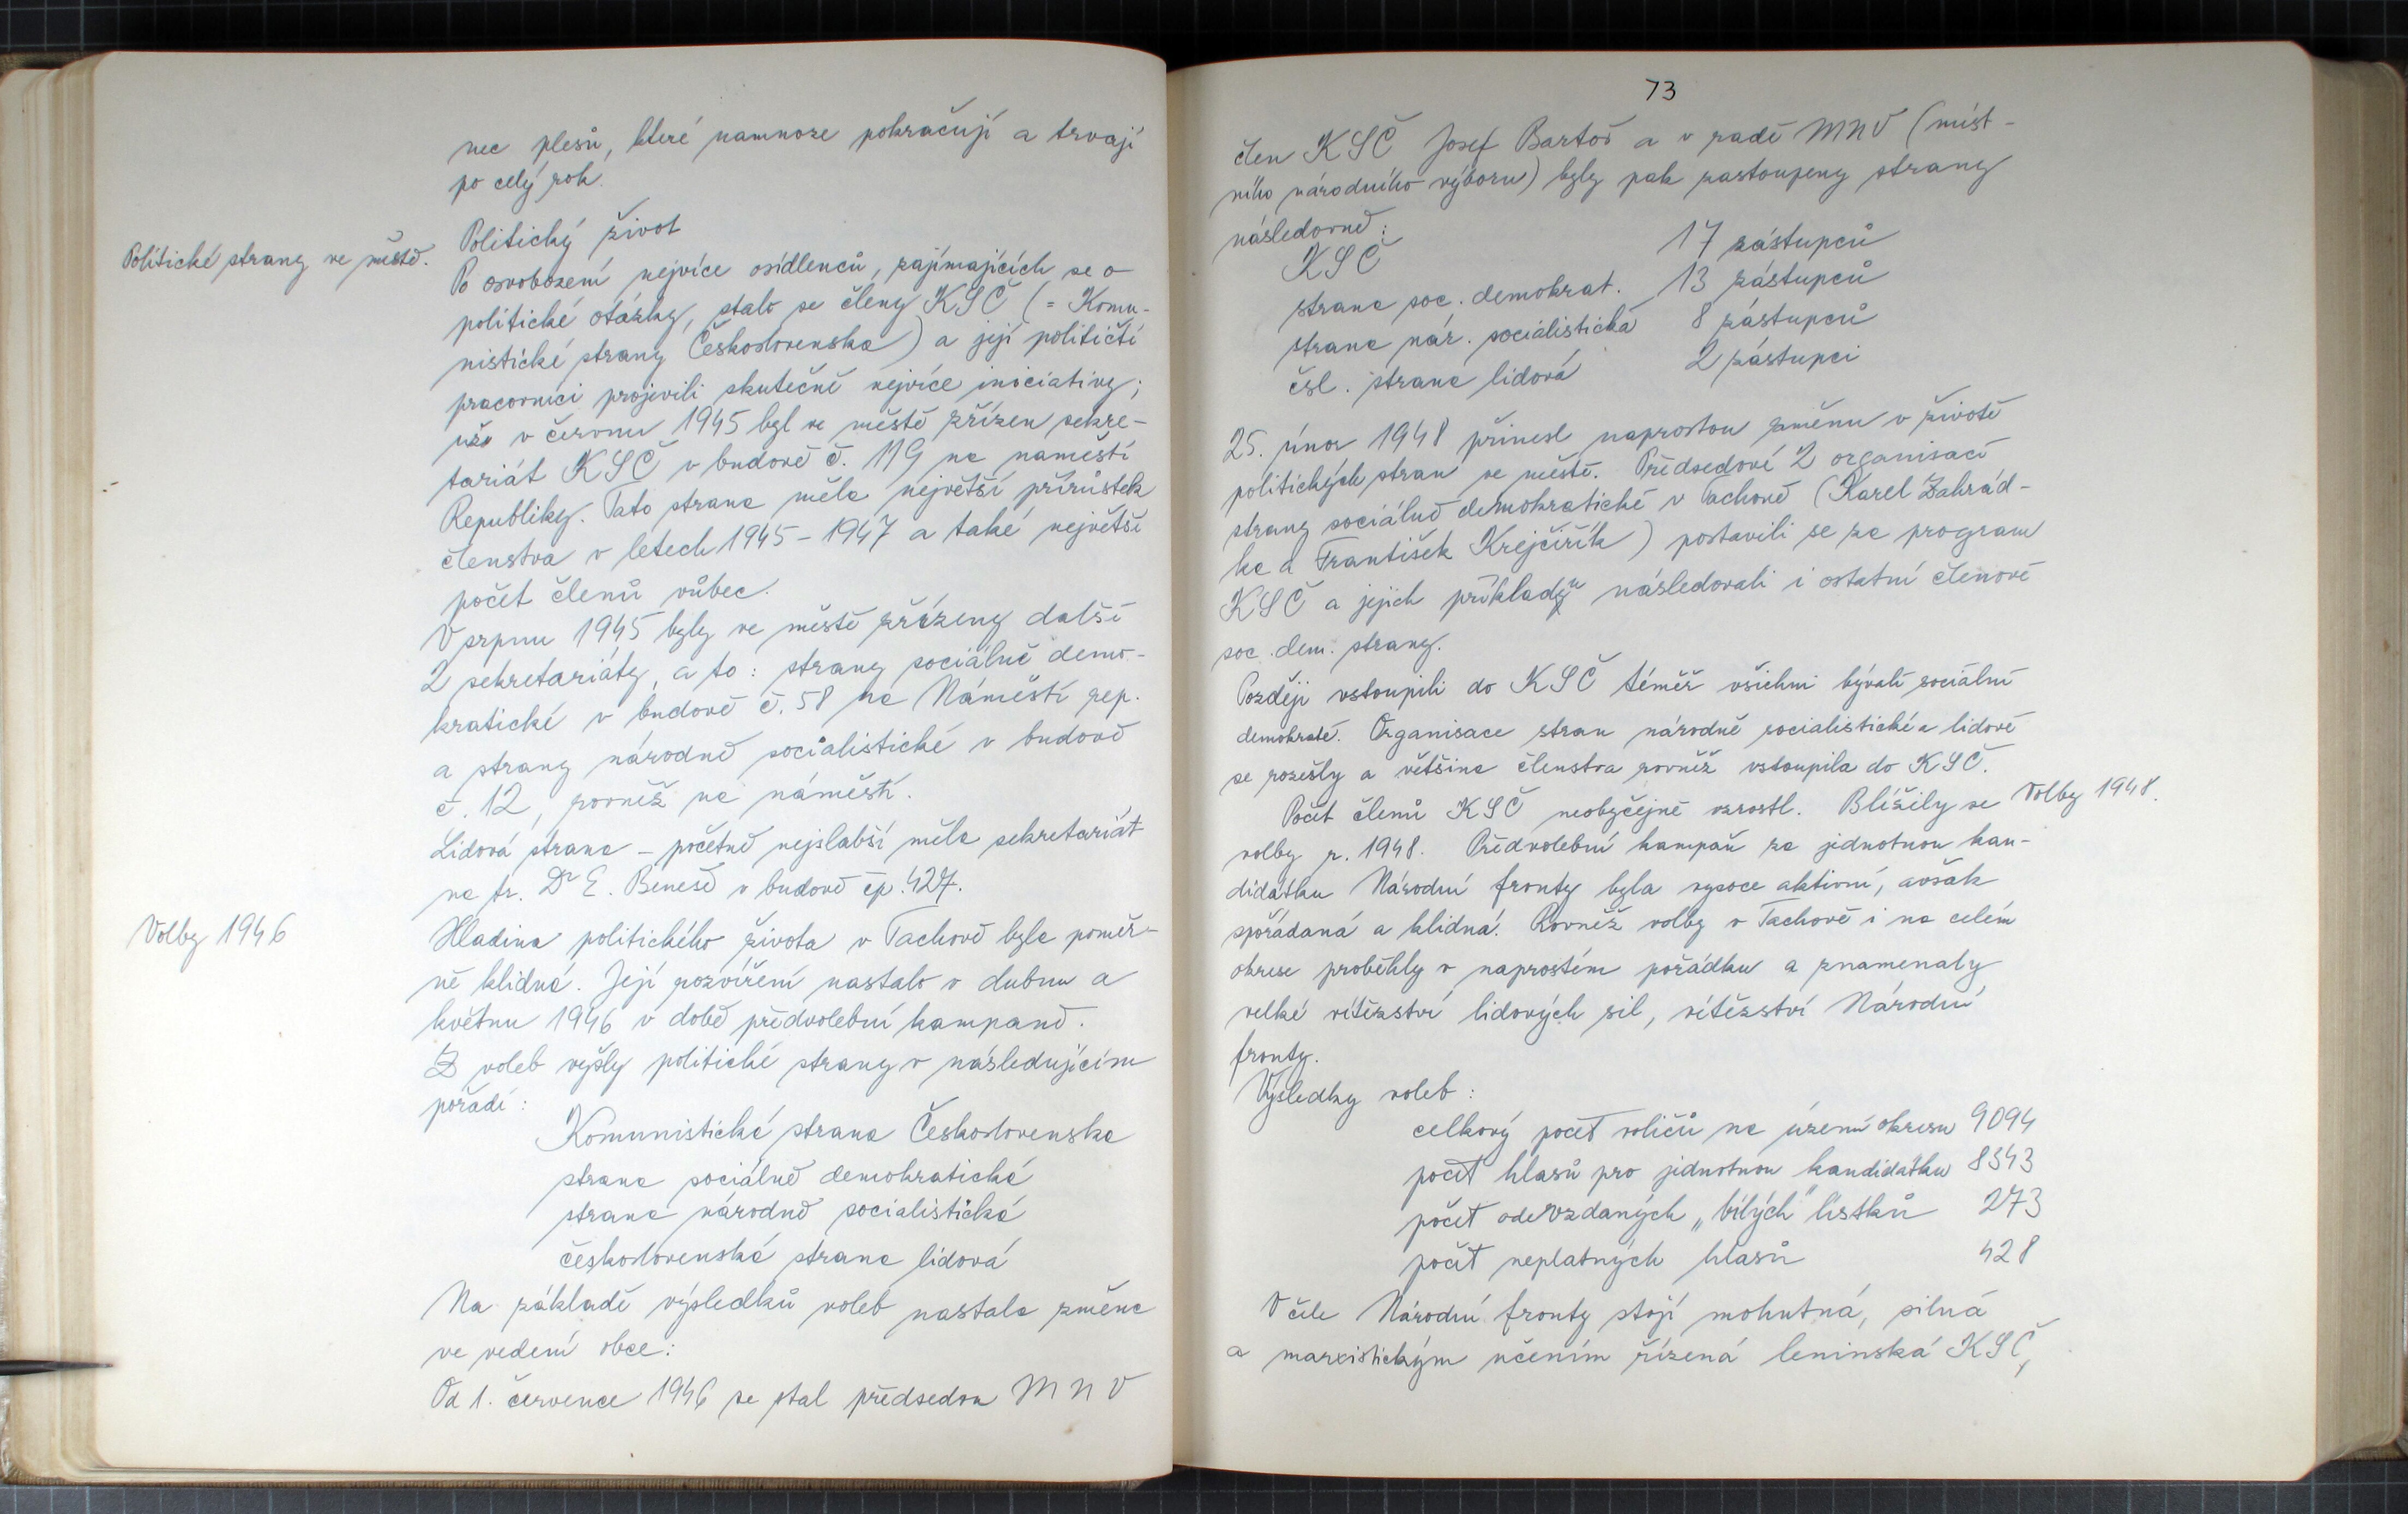 nec plesů, které namnoze pokračují a trvají
po celý rok.
Politický život
Politické strany ve městě.
Po osvobození nejvíce osídlenců, zajímajících se o
politické otázky, stalo se členy KSČ (= Komu-
nistické strany Československa) a její političtí
pracovníci projevili skutečně nejvíce iniciativy;
už v červnu 1945 byl ve městě zřízen sekre-
tariát KSČ v budově č. 119 na naměstí
Republiky. Tato strana měla největší přírůstek
členstva v letech 1945 - 1947 a také největší
počet členů vůbec.
V srpnu 1945 byly ve městě zřízeny další
2 sekretariáty, a to: strany sociálně demo-
kratické v budově č. 58 na Náměstí rep.
a strany národně socialistické v budově
č. 12, rovněž na náměstí.
Lidová strana - početně nejslabší měla sekretariát
na tr. Dr E. Beneše v budově čp. 427.
Volby 1946
Hladina politického života v Tachově byla poměr-
ně klidná. Její rozvíření nastalo v dubnu a
květnu 1946 v době předvolební kampaně.
Z voleb vyšly politické strany v následujícím
pořadí:
Komunistická strana Československa
strana sociálně demokratická
strana národně socialistická
československá strana lidová
Na základě výsledků voleb nastala změna
ve vedení obce:
Od 1. července 1946 se stal předsedou MNV
73
člen KSČ Josef Bartoš a v radě MNV (míst-
ního národního výboru) byly pak zastoupeny strany
následovně:
KSČ 17 zástupců
strana soc. demokrat. 13 zástupců
strana nár. socialistická 8 zástupců
čsl. strana lidová 2 zástupci
25. únor 1948 přinesl naprostou změnu v životě
politických stran ve městě. Předsedové 2 organisací
strany sociálně demokratické v Tachově (Karel Zahrád-
ka a František Krejčiřík) postavili se za program
KSČ a jejich příkladu následovali i ostatní členové
soc. dem. strany.
Později vstoupili do KSČ téměř všichni bývalí sociální
demokraté. Organisace stran národně socialistické a lidové
se rozešly a většina členstva rovněž vstoupila do KSČ.
Počet členů KSČ neobyčejně vzrostl. Blížily se
Volby 1948.
volby r. 1948. Předvolební kampaň za jednotnou kan-
didátku Národní fronty byla vysoce aktivní, avšak
spořádaná a klidná. Rovněž volby v Tachově i na celém
okrese proběhly v naprostém pořádku a znamenaly
velké vítězství lidových sil, vítězství Národní
fronty.
Výsledky voleb:
celkový počet voličů na území okresu 9094
počet hlasů pro jednotnou kandidátku 8343
počet odevzdaných „bílých" lístků 273
počet neplatných hlasů 428
V čele Národní fronty stojí mohutná, silná
a marxistickým učením řízená leninská KSČ,